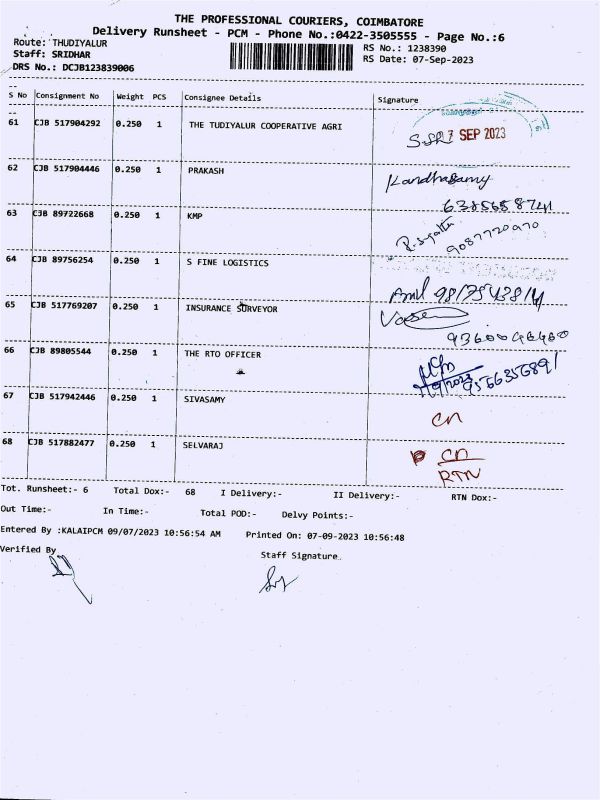 THE PROFESSIONAL COURIERS, COIMBATORE
Delivery Runsheet - PCM - Phone No.:0422-3505555 - Page No.:6
Route: THUDIYALUR RS No.: 1238390
Staff: SRIDHAR RS Date: 07-Sep-2023
DRS No.: DCJB123839006
S No Consignment No Weight PCS Consignee Details Signature
61 CJB 517904292 0.250 1 THE TUDIYALUR COOPERATIVE AGRI 7 SEP 2023
62 CJB 517904446 0.250 1 PRAKASH Kandhasamy
6385658741
63 CJB 89722668 0.250 1 KMP
9087720970
64 CJB 89756254 0.250 1 S FINE LOGISTICS
65 CJB 517769207 0.250 1 INSURANCE SURVEYOR
66 CJB 89805544 0.250 1 THE RTO OFFICER
67 CJB 517942446 0.250 1 SIVASAMY CN
68 CJB 517882477 0.250 1 SELVARAJ CN
RTN
Tot. Runsheet:- 6 Total Dox:- 68 I Delivery:- II Delivery:- RTN Dox:-
Out Time:- In Time:- Total POD:- Delvy Points:-
Entered By :KALAIPCM 09/07/2023 10:56:54 AM Printed On: 07-09-2023 10:56:48
Verified By Staff Signature